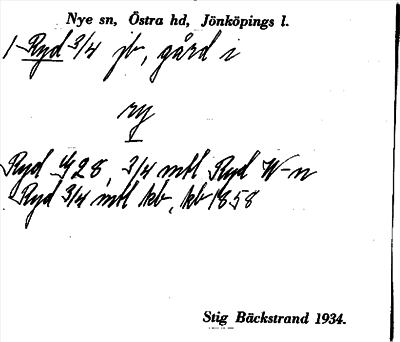 Nye sn, Östra hd, Jönköpings l.
1 Ryd 3/4 jb, gård i
ry
Ryd 428, 3/4 mtl Ryd W-n
Ryd 3/4 mtl kb, kb 1858
Stig Bäckstrand 1934.